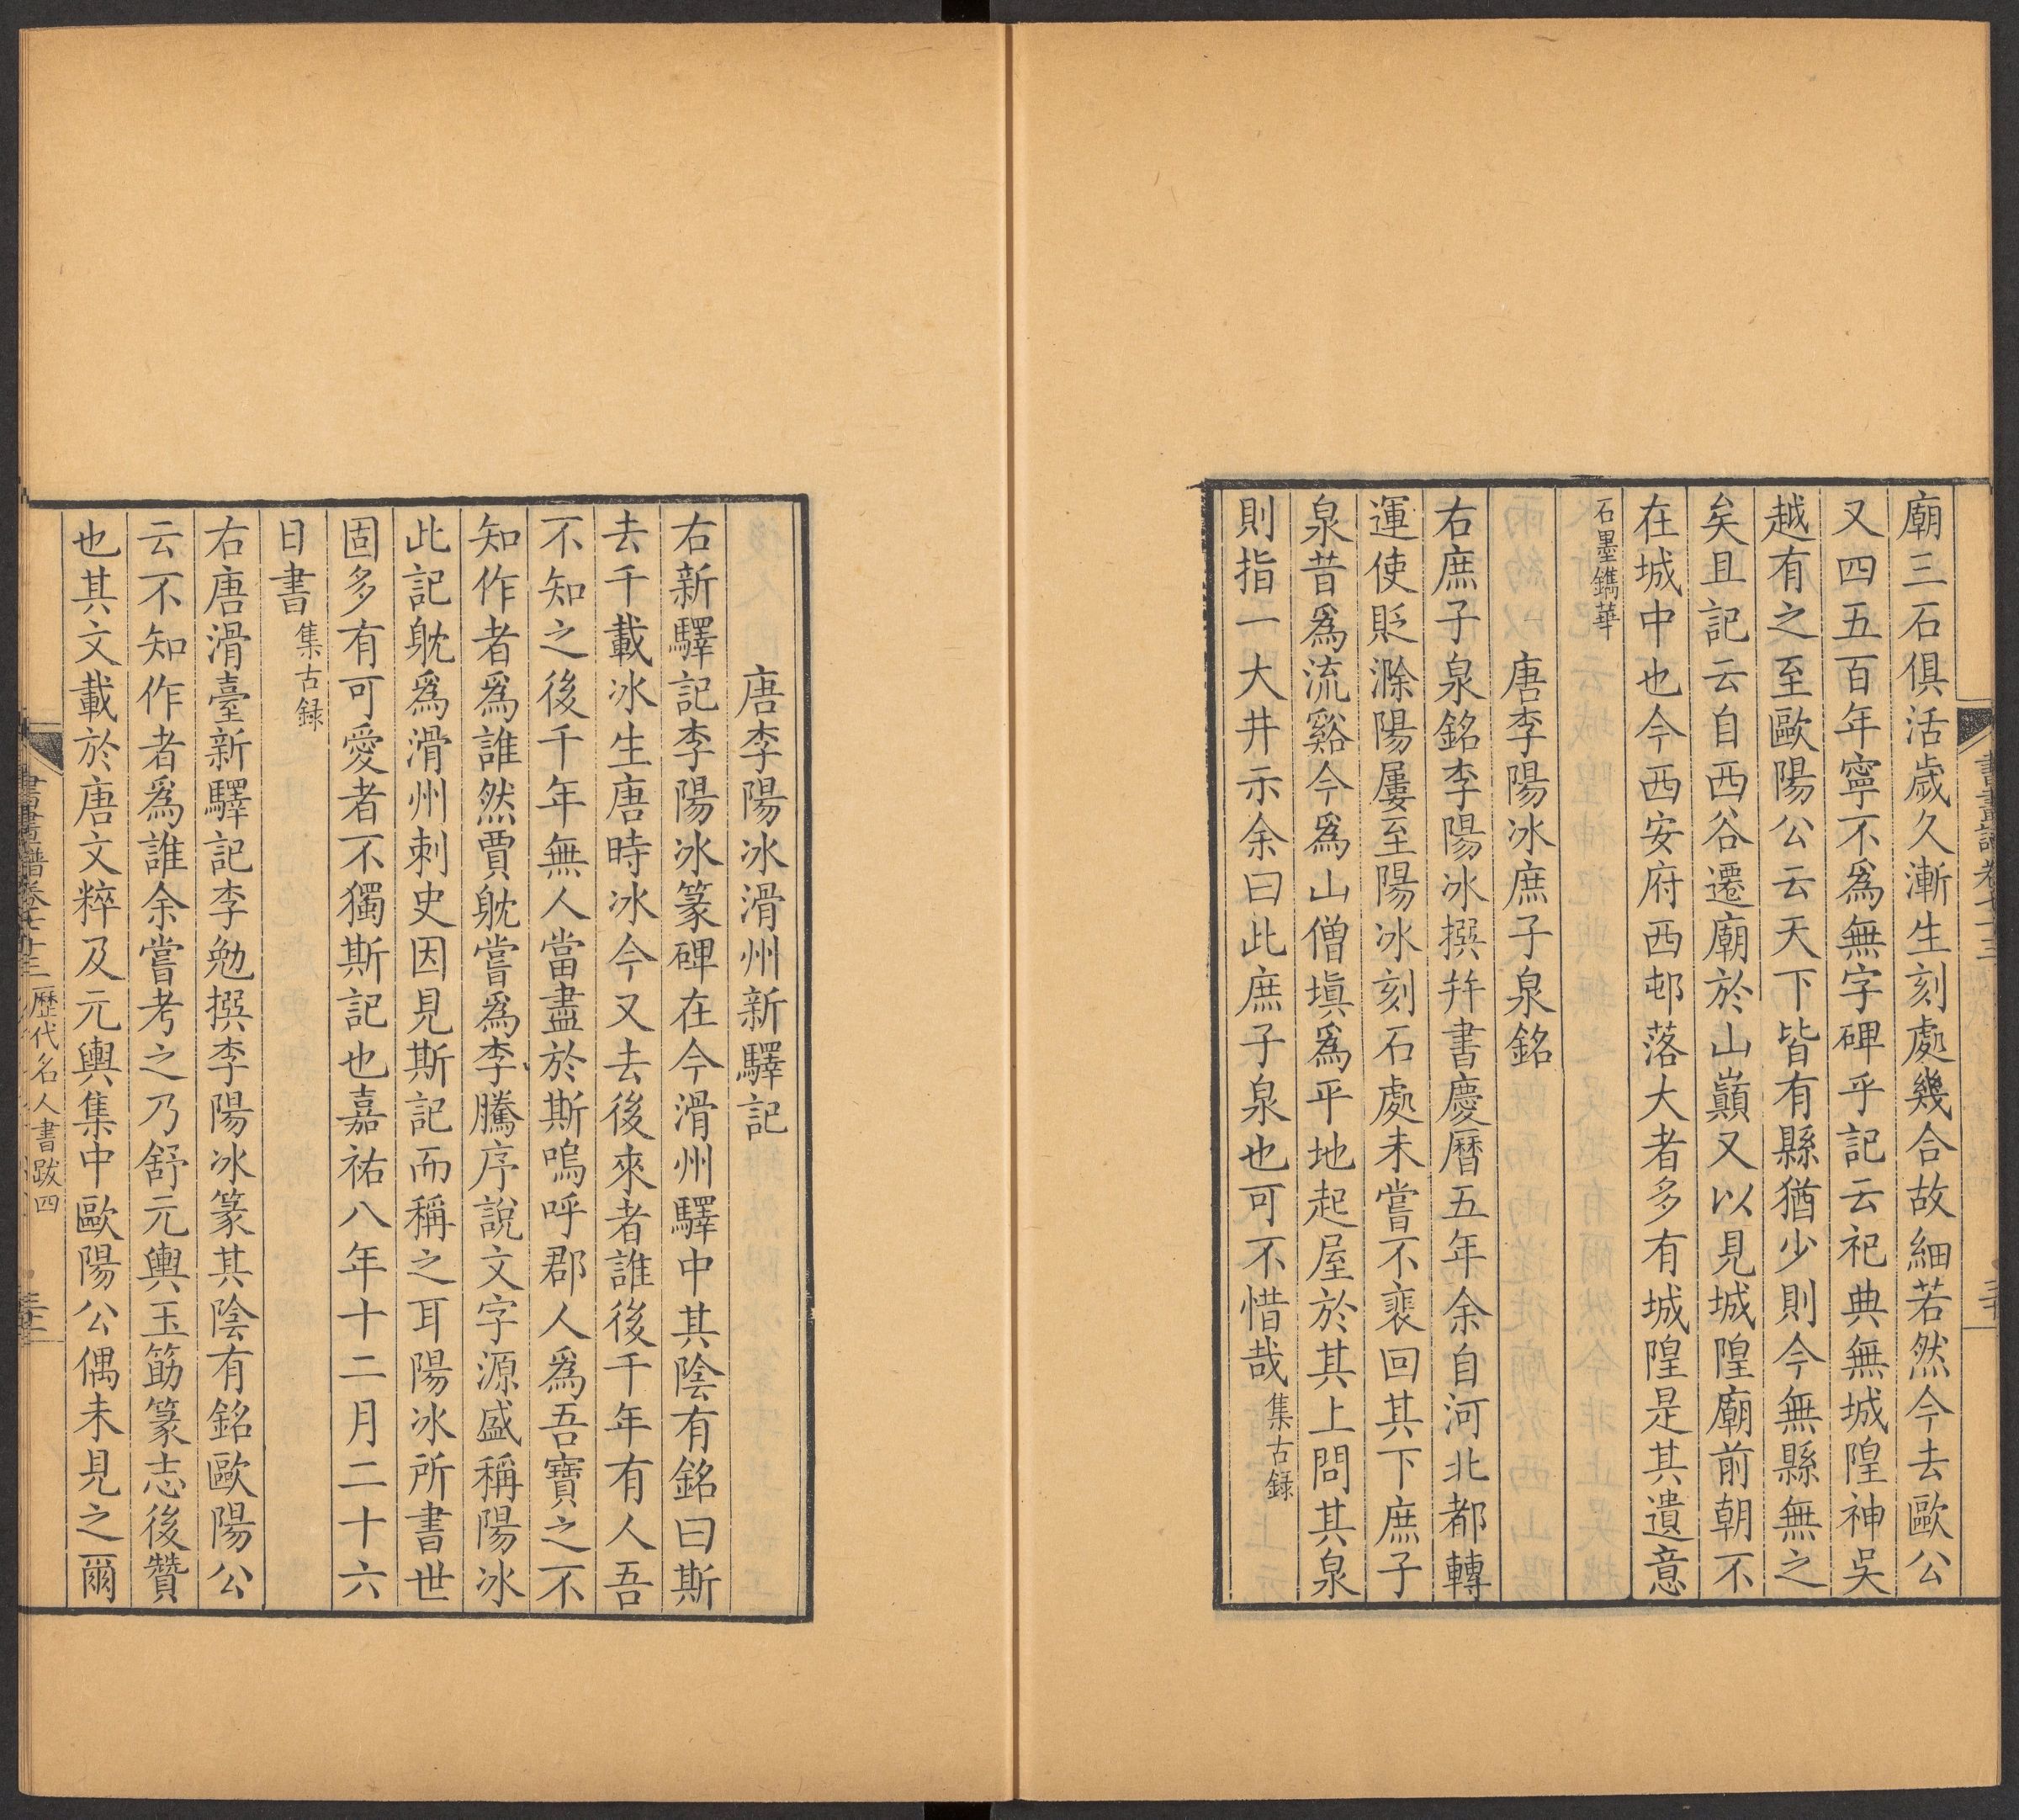 廟三石俱活歲久漸生刻處幾合故細若然今去歐公
又四五百年寧不爲無字碑乎記云祀典無城隍神吳
越有之至歐陽公云天下皆有縣猶少則今無縣無之
矣且記云自西谷遷廟於山巔又以見城隍廟前朝不
在城中也今西安府西邨落大者多有城隍是其遺意
石墨鐫華
唐李陽冰庶子泉銘
右庶子泉銘李陽冰撰并書慶曆五年余自河北都轉
運使貶滁陽屢至陽冰刻石處未嘗不裵回其下庶子
泉昔爲流谿今爲山僧塡爲平地起屋於其上問其泉
則指一大井示余曰此庶子泉也可不惜哉集古録
唐李陽冰滑州新驛記
右新驛記李陽冰篆碑在今滑州驛中其陰有銘曰斯
去千載冰生唐時冰今又去後來者誰後千年有人吾
不知之後千年無人當盡於斯嗚呼郡人爲吾寶之不
知作者爲誰然賈躭嘗爲李騰序說文字源盛稱陽冰
此記躭爲滑州刺史因見斯記而稱之耳陽冰所書世
固多有可愛者不獨斯記也嘉祐八年十二月二十六
日書集古録
右唐滑臺新驛記李勉撰李陽冰篆其陰有銘歐陽公
云不知作者爲誰余嘗考之乃舒元輿玉筯篆志後贊
也其文載於唐文粹及元輿集中歐陽公偶未見之爾
書畫譜卷七十三 歷代名人書跋四